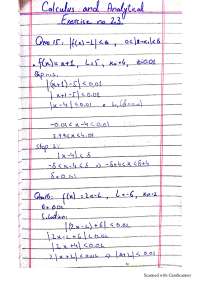 Calculus and Analytical
Exercise no 2.3
Qno 15: |f(x)-L|<ε, 0<|x-x₀|<δ
f(x)=x+1, L=5, x₀=4, ε=0.01
|(x+1)-5|<0.01
|x+1-5|<0.01
|x-4|<0.01
-0.01<x-4<0.01
3.99<x<4.01
Step 2:
|x-4|<δ
-δ<x-4<δ ⇒ -δ+4<x<δ+4
δ=0.01
f(x)=2x-2, L=-6, x₀=-2
ε=0.02
Solution:
|(2x-2)+6|<0.02
|2x-2+6|<0.02
|2x+4|<0.02
2|x+2|<0.02 ⇒ |x+2|<0.01
Scanned with CamScanner